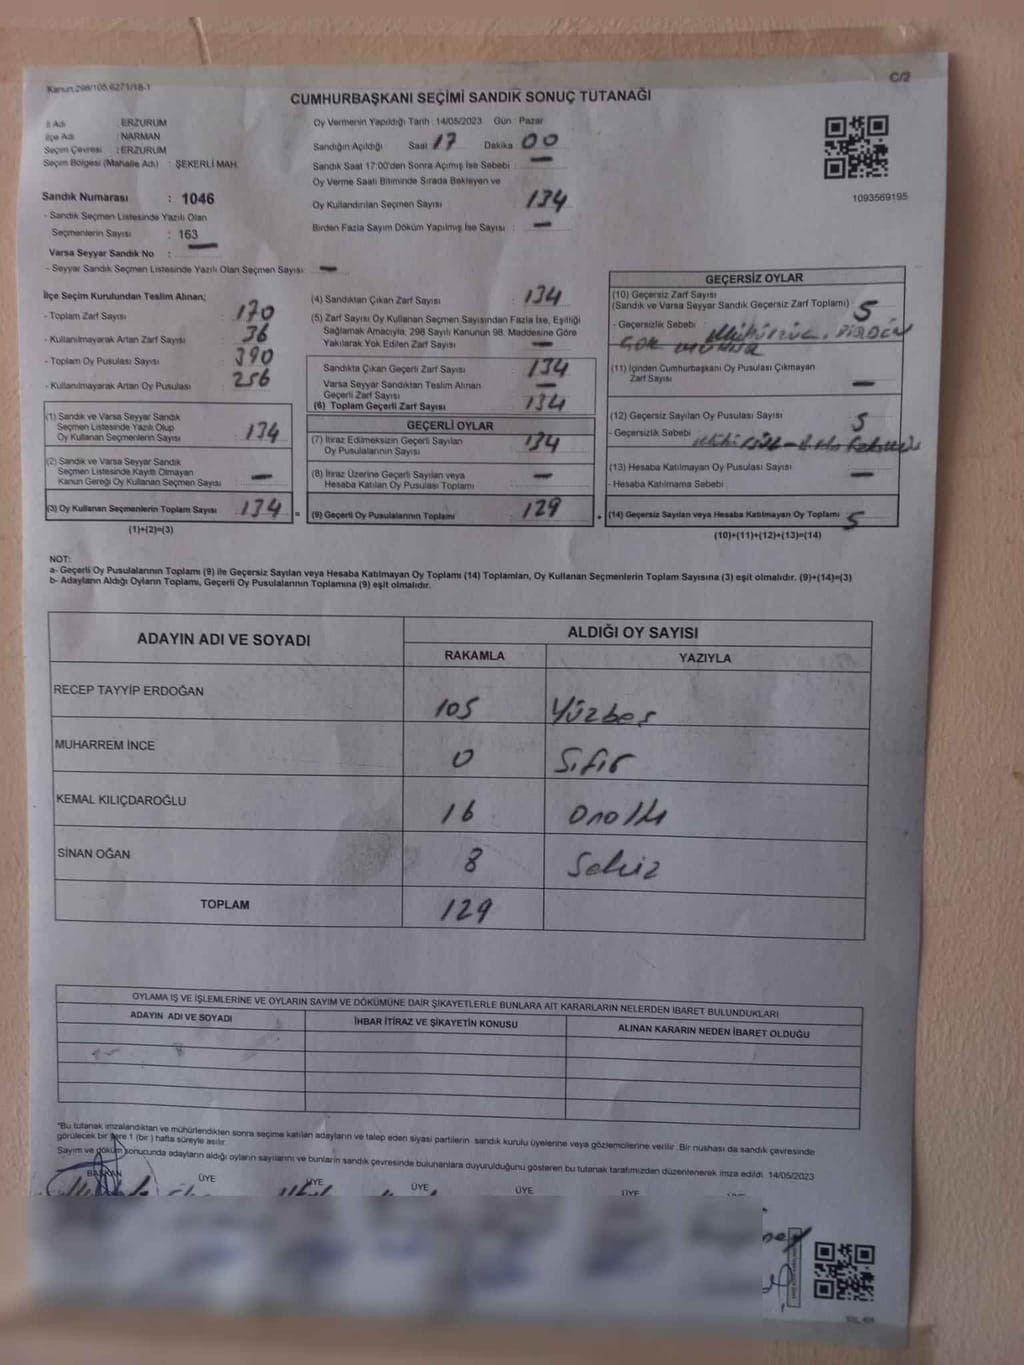 Kanun.298/105,6271/18-1
C/2
CUMHURBAŞKANI SEÇİMİ SANDIK SONUÇ TUTANAĞI
İl Adı : ERZURUM
İlçe Adı : NARMAN
Seçim Çevresi : ERZURUM
Seçim Bölgesi (Mahalle Adı) : ŞEKERLİ MAH.
Sandık Numarası : 1046
- Sandık Seçmen Listesinde Yazılı Olan
Seçmenlerin Sayısı : 163
Varsa Seyyar Sandık No : —
- Seyyar Sandık Seçmen Listesinde Yazılı Olan Seçmen Sayısı: —
Oy Vermenin Yapıldığı Tarih : 14/05/2023 Gün : Pazar
Sandığın Açıldığı Saat : 17 Dakika : 00
Sandık Saat 17:00'den Sonra Açımış İse Sebebi : —
Oy Verme Saati Bitiminde Sırada Bekleyen ve
Oy Kullandırılan Seçmen Sayısı : 134
Birden Fazla Sayım Döküm Yapılmış İse Sayısı : —
1093569195
İlçe Seçim Kurulundan Teslim Alınan;
- Toplam Zarf Sayısı : 170
- Kullanılmayarak Artan Zarf Sayısı : 36
- Toplam Oy Pusulası Sayısı : 390
- Kullanılmayarak Artan Oy Pusulası : 256
(1) Sandık ve Varsa Seyyar Sandık
Seçmen Listesinde Yazılı Olup
Oy Kullanan Seçmenlerin Sayısı : 134
(2) Sandık ve Varsa Seyyar Sandık
Seçmen Listesinde Kayıtlı Olmayan
Kanun Gereği Oy Kullanan Seçmen Sayısı : —
(3) Oy Kullanan Seçmenlerin Toplam Sayısı : 134
(1)+(2)=(3)
(4) Sandıktan Çıkan Zarf Sayısı : 134
(5) Zarf Sayısı Oy Kullanan Seçmen Sayısından Fazla İse, Eşitliği
Sağlamak Amacıyla, 298 Sayılı Kanunun 98. Maddesine Göre
Yakılarak Yok Edilen Zarf Sayısı : —
Sandıkta Çıkan Geçerli Zarf Sayısı : 134
Varsa Seyyar Sandıktan Teslim Alınan
Geçerli Zarf Sayısı : —
(6) Toplam Geçerli Zarf Sayısı : 134
GEÇERLİ OYLAR
(7) İtiraz Edilmeksizin Geçerli Sayılan
Oy Pusulasının Sayısı : 134
(8) İtiraz Üzerine Geçerli Sayılan veya
Hesaba Katılan Oy Pusulası Toplamı : —
= (9) Geçerli Oy Pusulalarının Toplamı : 129
GEÇERSİZ OYLAR
(10) Geçersiz Zarf Sayısı
(Sandık ve Varsa Seyyar Sandık Geçersiz Zarf Toplamı) : 5
- Geçersizlik Sebebi :
(11) İçinden Cumhurbaşkanı Oy Pusulası Çıkmayan
Zarf Sayısı : —
(12) Geçersiz Sayılan Oy Pusulası Sayısı : 5
- Geçersizlik Sebebi :
(13) Hesaba Katılmayan Oy Pusulası Sayısı : —
- Hesaba Katılmama Sebebi :
+ (14) Geçersiz Sayılan veya Hesaba Katılmayan Oy Toplamı : 5
(10)+(11)+(12)+(13)=(14)
NOT:
a- Geçerli Oy Pusulalarının Toplamı (9) ile Geçersiz Sayılan veya Hesaba Katılmayan Oy Toplamı (14) Toplamları, Oy Kullanan Seçmenlerin Toplam Sayısına (3) eşit olmalıdır. (9)+(14)=(3)
b- Adayların Aldığı Oyların Toplamı, Geçerli Oy Pusulalarının Toplamına (9) eşit olmalıdır.
ADAYIN ADI VE SOYADI
ALDIĞI OY SAYISI
RAKAMLA YAZIYLA
RECEP TAYYİP ERDOĞAN 105 Yüzbeş
MUHARREM İNCE 0 Sıfır
KEMAL KILIÇDAROĞLU 16 Onaltı
SİNAN OĞAN 8 Sekiz
TOPLAM 129
OYLAMA İŞ VE İŞLEMLERİNE VE OYLARIN SAYIM VE DÖKÜMÜNE DAİR ŞİKAYETLERLE BUNLARA AİT KARARLARIN NELERDEN İBARET BULUNDUKLARI
ADAYIN ADI VE SOYADI İHBAR İTİRAZ VE ŞİKAYETİN KONUSU ALINAN KARARIN NEDEN İBARET OLDUĞU
*Bu tutanak imzalandıktan ve mühürlendikten sonra seçime katılan adayların ve talep eden siyasi partilerin sandık kurulu üyelerine veya gözlemcilerine verilir. Bir nüshası da sandık çevresinde
görülecek bir yere 1 (bir ) hafta süreyle asılır
Sayım ve döküm sonucunda adayların aldığı oyların sayılarını ve bunların sandık çevresinde bulunanlara duyurulduğunu gösteren bu tutanak tarafımızdan düzenlenerek imza edildi. 14/05/2023
BAŞKAN ÜYE ÜYE ÜYE ÜYE ÜYE